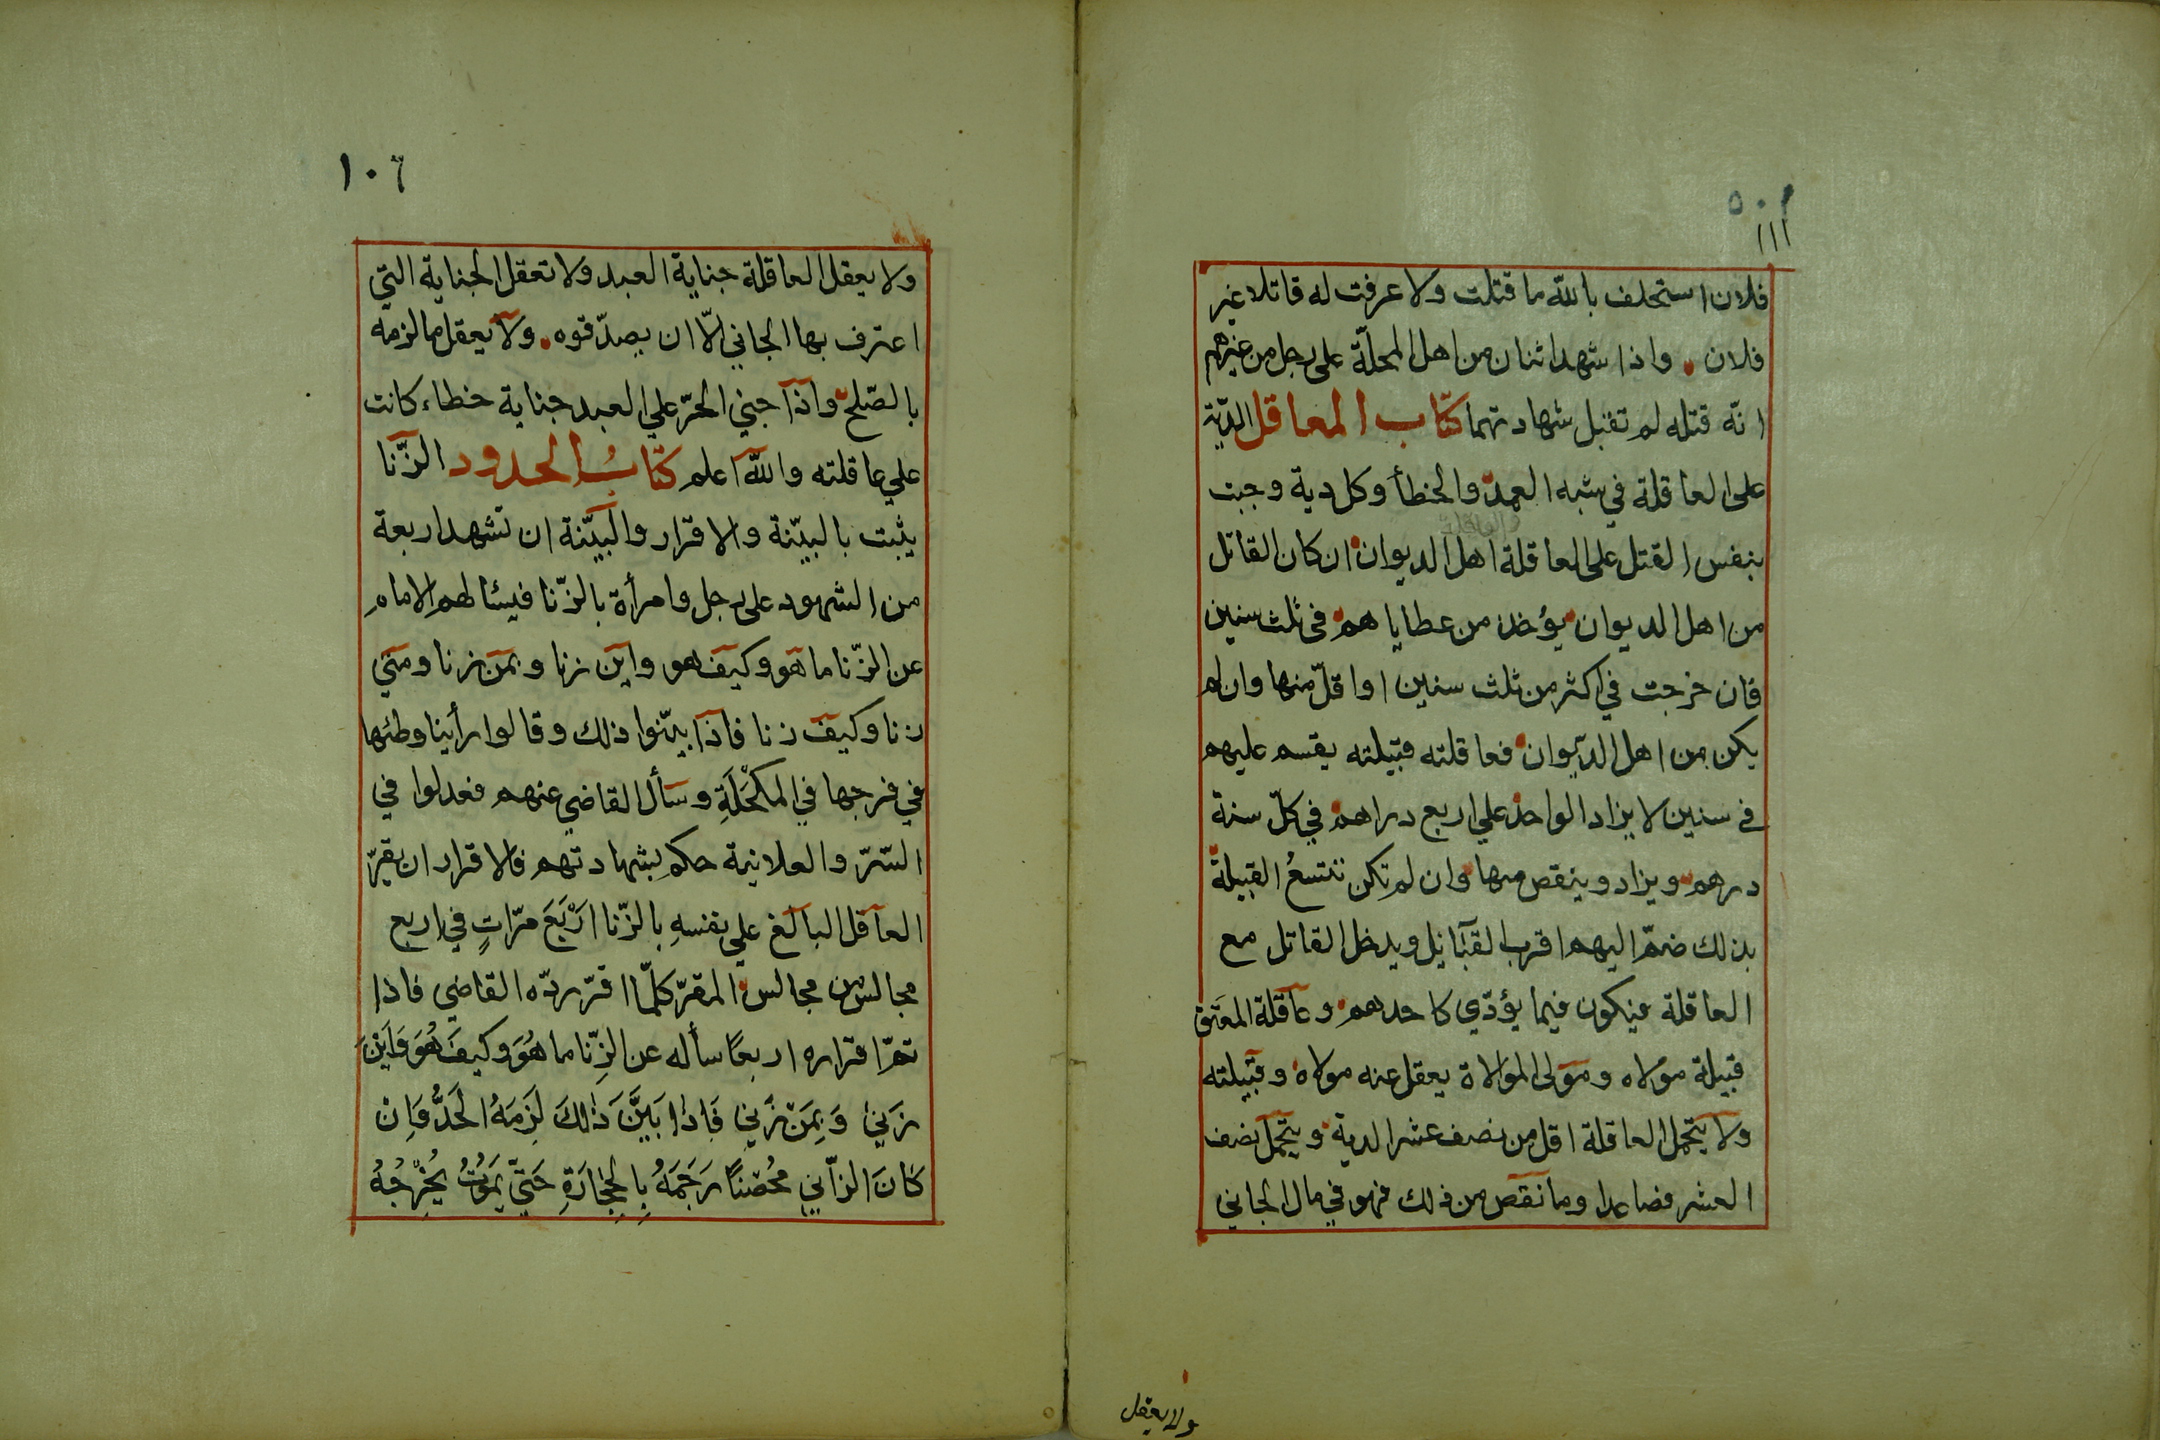 ١٠٥
١١١
فلان استحلف بالله ما قتلت ولا عرفت له قاتلا غير
فلان واذا شهد اثنان من اهل المحلّة على رجل من غيرهم
انّه قتله لم تقبل شهادتهما كتاب المعاقل الدّية
على العاقلة في شبه العمد والخطأ وكل دية وجبت
والعاقلة
بنفس القتل على العاقلة اهل الديوان ان كان القاتل
من اهل الديوان يؤخذ من عطاياهم فى ثلث سنين
فان خرجت في اكثر من ثلث سنين او اقلّ منها وان لم
يكن من اهل الدّيوان فعاقلته قبيلته يقسم عليهم
في سنين لا يزاد الواحد علي اربع دراهم في كلّ سنة
درهم ويزاد وينقص منها وان لم تكن تتسعُ القبيلة
بذلك ضمّ اليهم اقرب القبَائل ويدخل القاتل مع
العاقلة فيكون فيما يؤدّي كاحدهم وعاقلة المعتق
قبيلة مولاه ومولى الموالاة يعقل عنه مولاه وقبيلته
ولا يتحمل العاقلة اقل من نصف عشر الدية ويتحمل نصف
العشر فصاعدا وما نقص من ذلك فهو في مال الجاني
ولا يعقل
١٠٦
ولا يعقل العاقلة جناية العبد ولا تعقل الجناية التي
اعترف بها الجاني الّا ان يصدّقوه ولا يعقل ما لزمه
بالصّلح واذا جني الحرّ علي العبد جناية خطاء كانت
علي عاقلته والله اعلم كتابُ الحدود الزّنا
يثبت بالبيّنة والاقرار والبيّنة ان تشهد اربعة
من الشهود على رجل وامرأة بالزّنا فيسئالهم الامام
عن الزّنا ما هو وكيف هو واين زنا وبمن زنا ومتي
زنا وكيف زنا فاذا بيّنوا ذلك وقالوا رأينا وطئها
في فرجها في المكْحَلَةِ وسأل القاضي عنهم فعدلوا في
السّرّ والعلانية حكم بشهادتهم فالاقرار ان يقرّ
العاقل البالغ علي نفسهِ بالزّنا ارْبَعَ مرّاتٍ في اربع
مجالس من مجالس المقرّ كلّما اقرّ ردّه القاضي فاذا
تمّ اقراره اربعًا سأله عن الزِّنا ما هُوَ وكيفَ هُوَ وَاَيْنَ
زَنيٰ وَبِمَنْ زَنيٰ فَاِذٰا بَيَّنَ ذٰلكَ لَزِمَهُ الحَدُّ فَاِن
كٰانَ الزّاني محُصْنًا رَجَمَهُ بِالحِجٰارَةِ حَتّيٰ يَمُوْتُ يُخْرِجُهُ